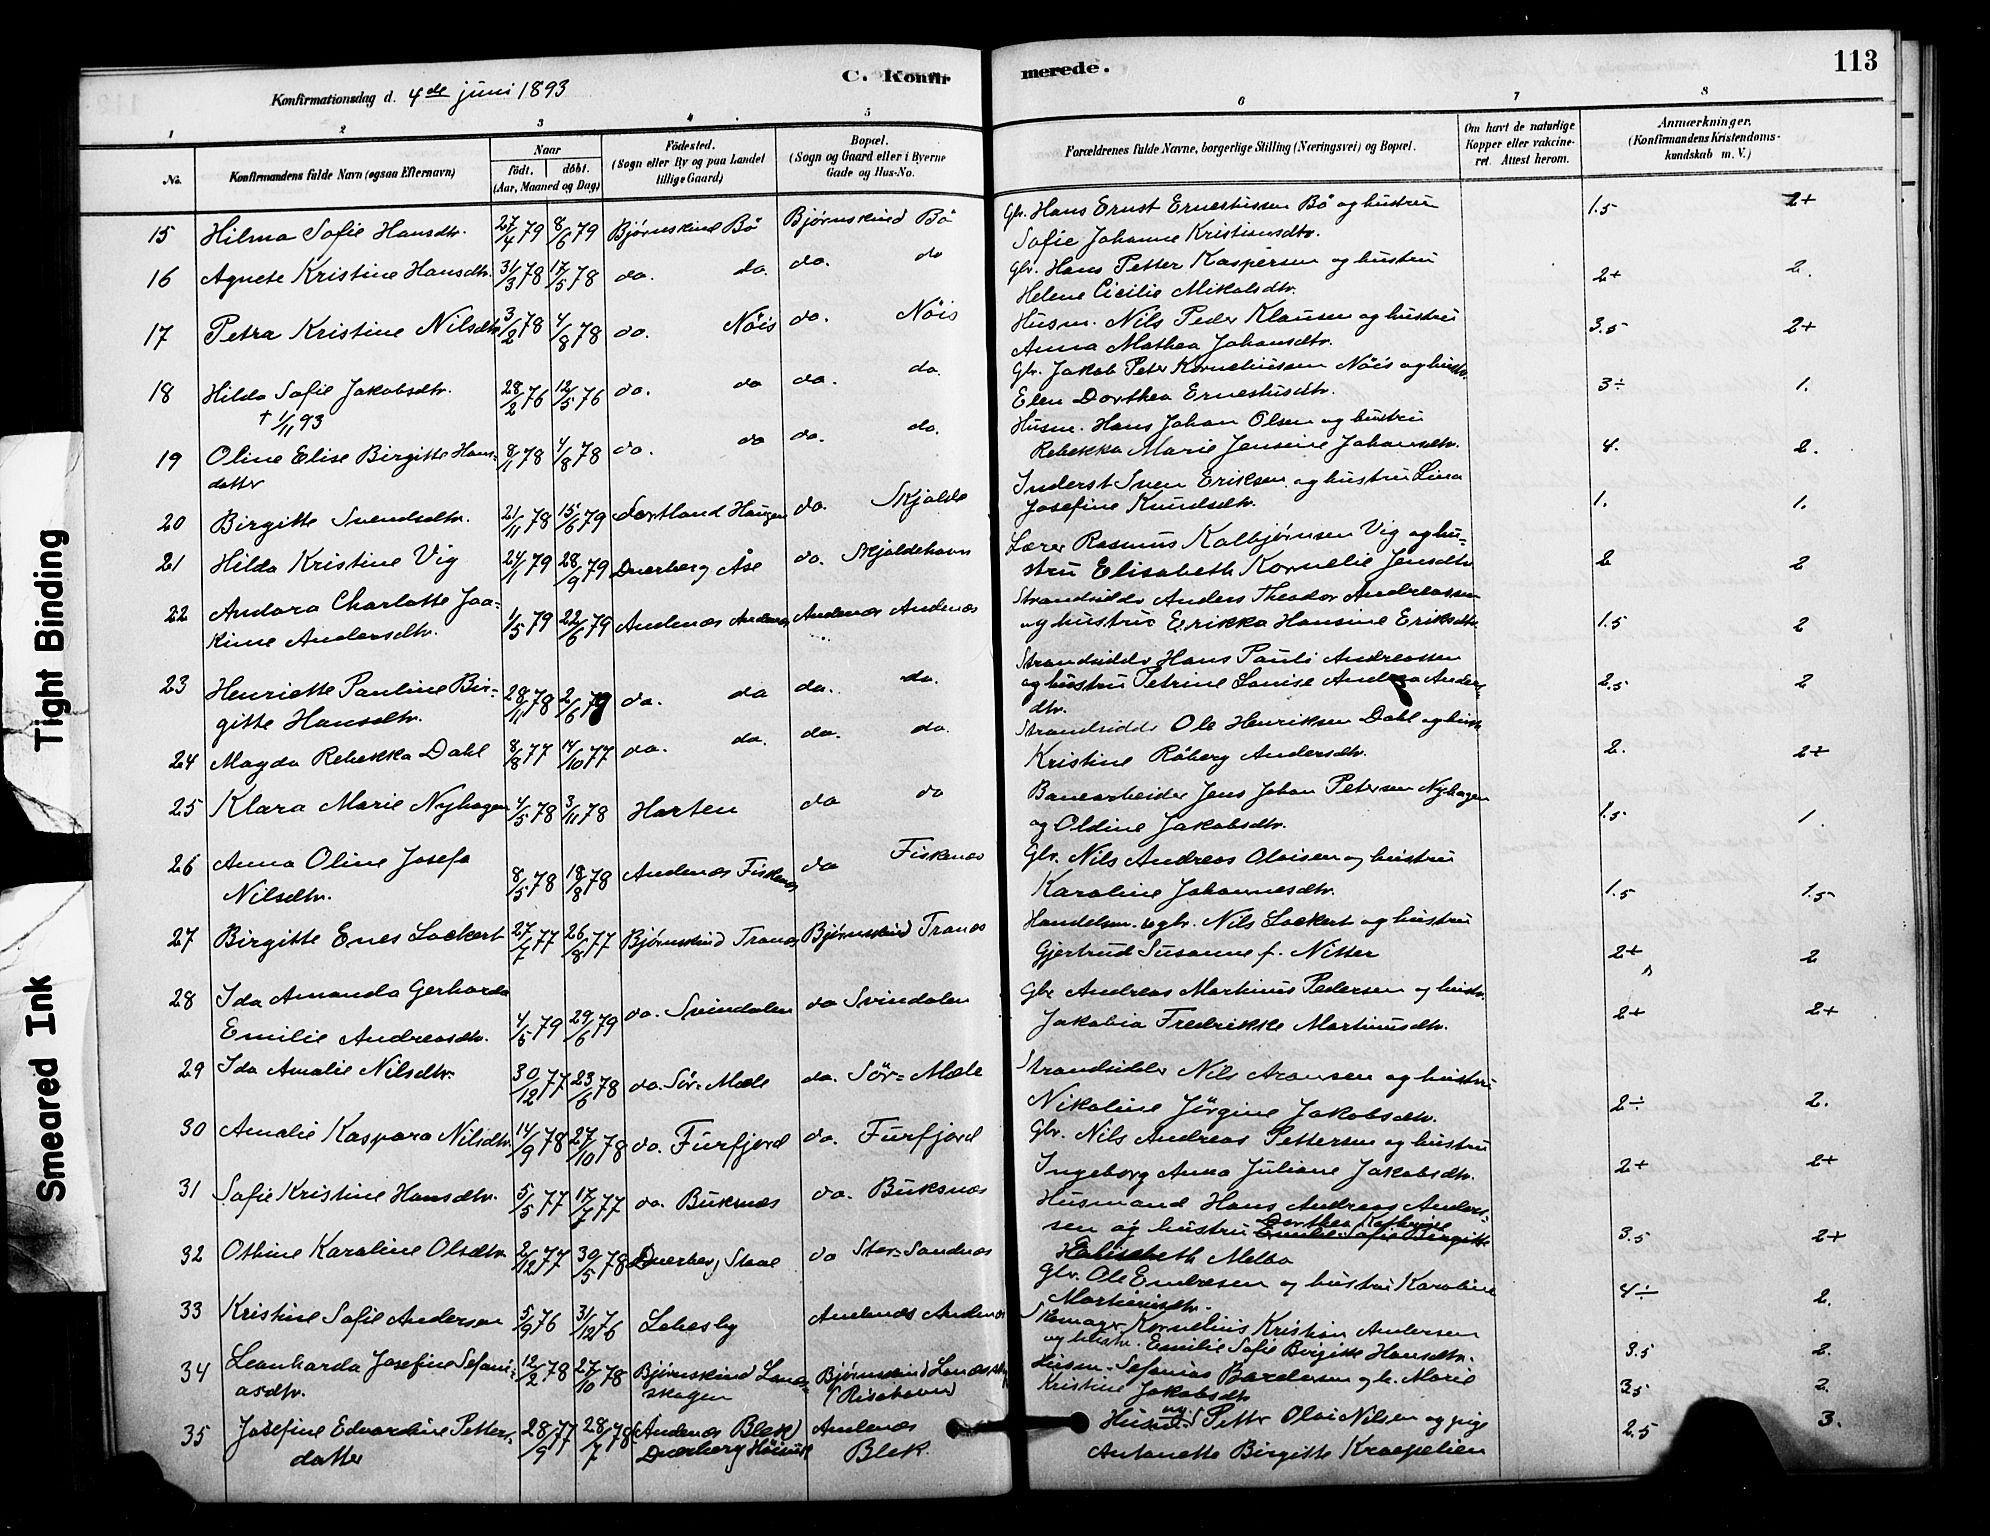 C. Konfirmerede.
113
Konfirmationsdag d. 4de juni 1893
1 2 3 4 5 6 7 8
No. Konfirmandens fulde Navn (ogsaa Efternavn) Naar født, døbt. (Aar, Maaned og Dag) Fødested. (Sogn eller By og paa Landet tillige Gaard) Bopæl. (Sogn og Gaard eller i Byerne Gade og Hus-No. Forældrenes fulde Navne, borgerlige Stilling (Næringsvei) og Bopæl. Om havt de naturlige Kopper eller vakcineret. Attest herom. Anmærkninger. (Konfirmandens Kristendomskundskab m. V.)
15 Hilma Sofie Hansdtr. 27/4 79 8/6 79 Bjørnskind Bö Bjørnskind Bö Gbr. Hans Ernst Ernestussen Bö og hustru 1.5 2+
Sofie Johanne Kristiansdtr.
16 Agnete Kristine Hansdtr. 31/3 78 17/5 78 do. do. do. do Gbr. Hans Petter Kaspersen og hustru 2+ 2.
Helene Cicilie Mikalsdtr.
17 Petra Kristine Nilsdtr 3/2 78 4/8 78 do. Nöis do. Nöis Husm. Nils Peder Klausen og hustru 3.5 2+
Anna Mathea Johansdtr.
18 Hilda Sofie Jakobsdtr. 28/2 76 12/5 76 do. do do. do. Gbr. Jakob Peter Korneliussen Nöis og hustr. 3÷ 1.
† 1/11 93 Elen Dorthea Ernestusdtr.
19 Oline Elise Birgitte Hans- 8/1 78 4/8 78 do. do do. do. Husm. Hans Johan Olsen og hustru 4. 2.
datter Rebekka Marie Jensine Johansdtr.
20 Birgitte Svendsdtr. 21/11 78 15/6 79 Sortland Haugen do. Skjolde Inderst Sven Eriksen og hustru Lina 1. 1.
Josefine Knudsdtr.
21 Hilda Kristine Vig 24/1 79 28/9 79 Dverberg Åse do. Skjoldehavn Lærer Rasmus Kolbjørnsen Vig og hu- 2 2
stru Elisabeth Kornelie Jensdtr
22 Andora Charlotte Joa- 1/5 79 22/6 79 Andenæs Andenæs Andenæs Andenæs Strandsidder Anders Theodor Andreassen 1.5 2
kine Andersdtr. og hustru Erikka Hansine Eriksdtr.
23 Henriette Pauline Bir- 28/11 78 2/6 79 do. do do. do. Strandsidder Hans Pauli Andreassen 2.5 2
gitte Hansdtr. og hustru Petrine Louise Anders-
dtr.
24 Magda Rebekka Dahl 8/8 77 14/10 77 do. do. do. do Strandsidder Ole Henriksen Dahl og hustr 2. 2+
Kristine Röberg Andersdtr.
25 Klara Marie Nyhagen 4/5 78 3/11 78 Horten do do Banearbeider Jens Johan Petersen Nyhagen 1.5 1.
og Oldine Jakobsdtr.
26 Anna Oline Josefa 8/5 78 18/8 78 Andenæs Fiskenæs do Fiskenæs Gbr. Nils Andreas Olaisen og hustru 1.5 1.5
Nilsdtr. Karoline Johannesdtr.
27 Birgitte Enes Lockert 27/7 77 26/8 77 Bjørnskind Tranæs Bjørnskind Tranæs Handelsm. og gbr. Nils Lockert og hustru 2+ 2
Gjertrud Susanne f. Nitter
28 Ida Amanda Gerharda 4/5 79 29/6 79 do. Svindalen do Svindalen Gbr Andreas Martinus Pedersen og hustr. 2+ 2+
Emilie Andreasdtr. Jakobia Fredrikke Martinusdtr.
29 Ida Amalie Nilsdtr. 30/12 77 23/6 78 do. Sör-Mæle do. Sör-Mæle Strandsidder Nils Aronsen og hustru 2÷ 2.
Nikoline Jörgine Jakobsdtr.
30 Amalie Kaspara Nilsdtr. 14/9 78 27/10 78 do. Furfjord do. Furfjord Gbr. Nils Andreas Pettersen og hustru 2+ 2+
Ingeborg Anna Juliane Jakobsdtr.
31 Sofie Kristine Hansdtr. 5/5 77 17/7 77 do. Buknæs do. Buksnæs Husmand Hans Andreas Anders- 3.5 2+
sen og hustru Dorthea Kathrine Emilie Sofie Birgitte
Elisabeth Melbo
32 Othine Karoline Olsdtr 2/12 77 30/5 78 Dverberg Stave do Stor-Sandnæs Gbr. Ole Endresen og hustru Karoline 4÷ 2.
Martinusdtr.
33 Kristine Sofie Andersen 5/9 76 31/12 76 Lebesby Andenæs Andenæs Skomager Kornelius Kristian Andersen 3.5 2.
og hustr. Emilie Sofie Birgitte Hansdtr.
34 Leonharda Josefine Sefani- 12/2 78 27/10 78 Bjørnskind Lones- Bjørnskind Husm. Sefanias Bardersen og h. Marie 3.5 2.
asdtr. skogen (Risøhavn) Kristine Jakobsdtr
35 Josefine Edvardine Petters- 28/9 77 28/7 78 (Andenæs Blek) Andenæs Petter Olai Nilsen og pige 2.5 3.
datter Dverberg Blek. Antonette Birgitte Kraepelien
Tight Binding
Smeared Ink